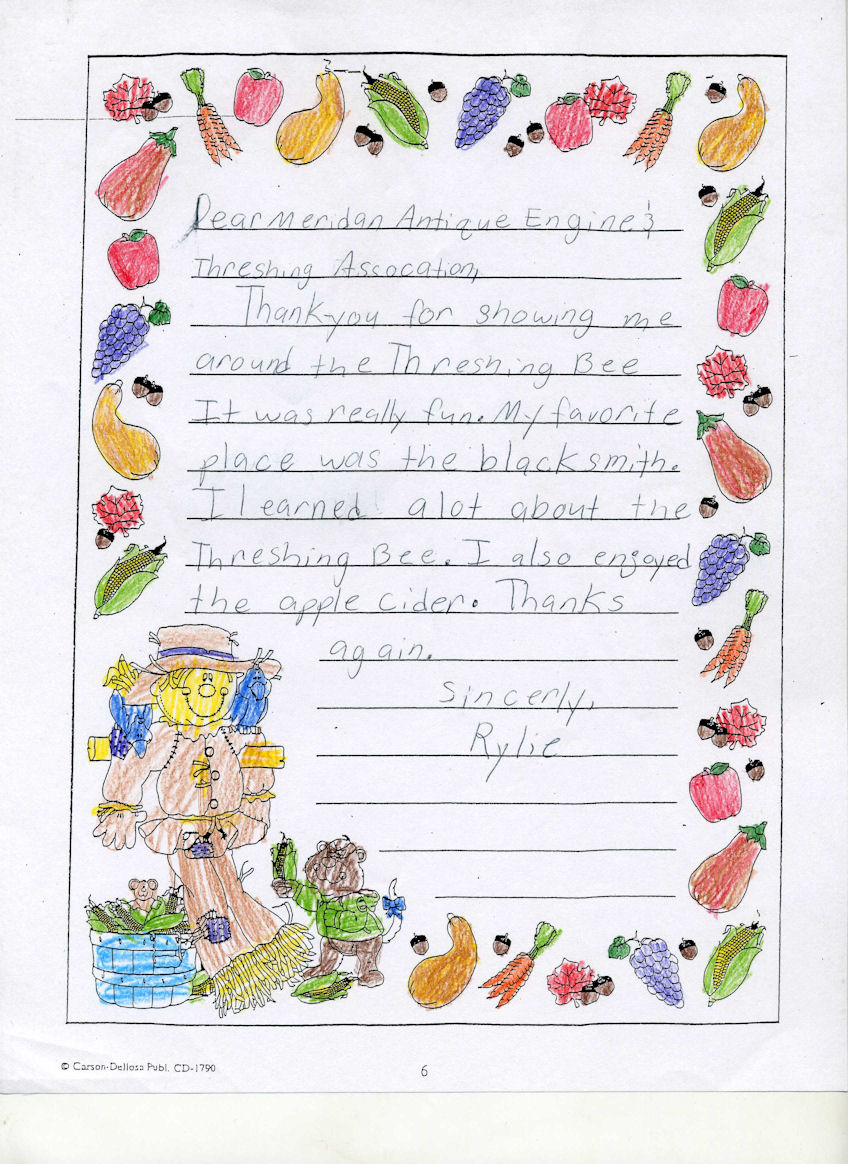 Dear Meridan Antique Engine &
Threshing Assocation,
Thank-you for showing me
around the Threshing Bee
It was really fun. My favorite
place was the blacksmith.
I learned alot about the
Threshing Bee. I also enjoyed
the apple cider. Thanks
again.
Sincerly,
Rylie
© Carson-Dellosa Publ. CD-1790
6